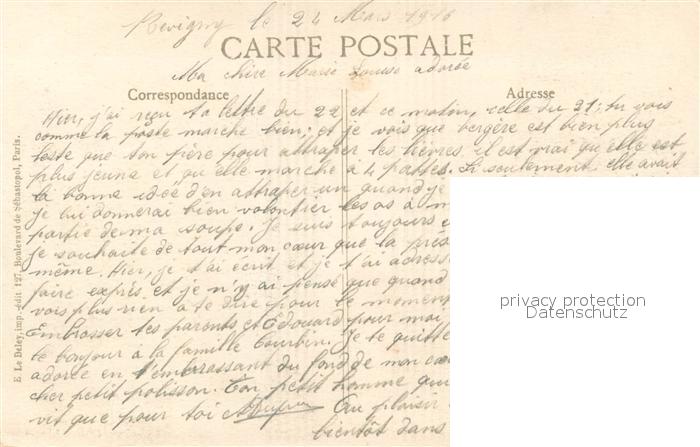 Revigny le 24 Mars 1916
CARTE POSTALE
Ma chère Marie Louise adorée
Correspondance
Adresse
Hier, j'ai reçu ta lettre du 22 et ce matin, celle du 21; tu vois
comme la poste marche bien; et je vois que bergère est bien plus
leste que ton père pour attraper les lièvres. Il est vrai qu'elle est
plus jeune et qu'elle marche à 4 pattes. Si seulement elle avait
la bonne idée d'en attraper un quand je
je lui donnerai bien volontier les os à m
partie de ma soupe. Je suis toujours e
je souhaite de tout mon cœur que la prés
même. Hier, je t'ai écrit et je t'ai adress
faire exprès et je n'y ai pensé que quand
vois plus rien à te dire pour le moment
Embrasser tes parents et Edouard pour moi
le bonjour à la famille Courbin. Je te quitte
adorée en t'embrassant du fond de mon cœu
cher petit polisson. Ton petit homme qui
vit que pour toi
Au plaisir
bientôt dans
E. Le Deley, imp.-édit 127, Boulevard de Sébastopol, Paris.
privacy protection
Datenschutz